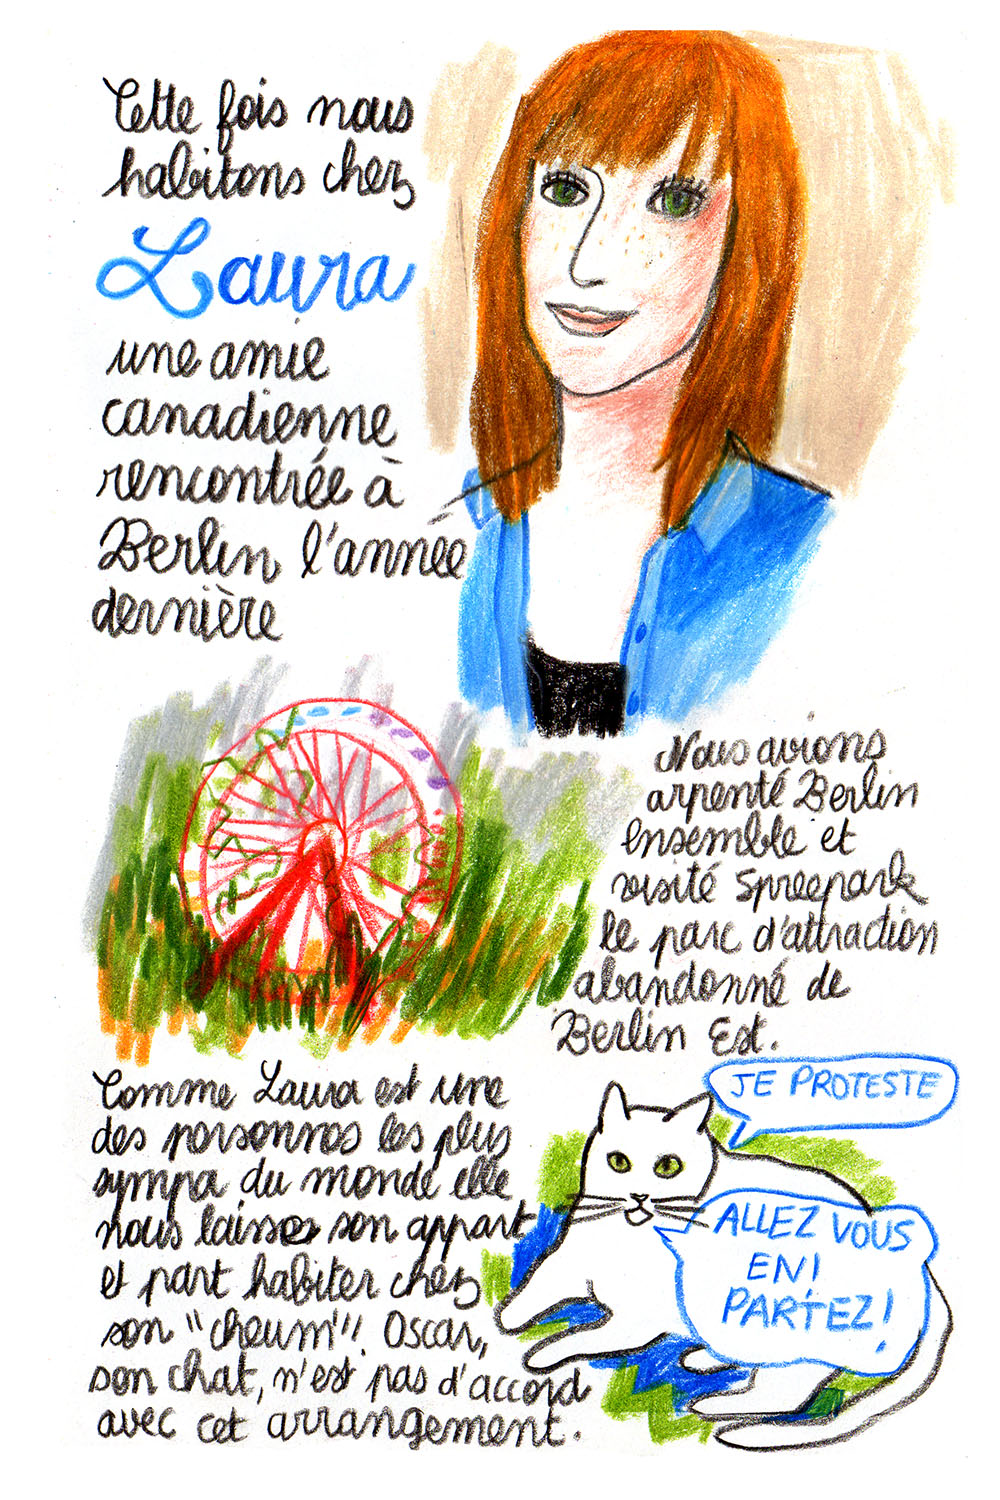 Cette fois nous
habitons chez
Laura
une amie
canadienne
rencontrée à
Berlin l'année
dernière
Nous avions
arpenté Berlin
ensemble et
visité Spreepark
le parc d'attraction
abandonné de
Berlin Est.
Comme Laura est une
des personnes les plus
sympa du monde elle
nous laisse son appart
et part habiter chez
son "cheum". Oscar,
son chat, n'est pas d'accord
avec cet arrangement.
JE PROTESTE
ALLEZ VOUS
EN!
PARTEZ!